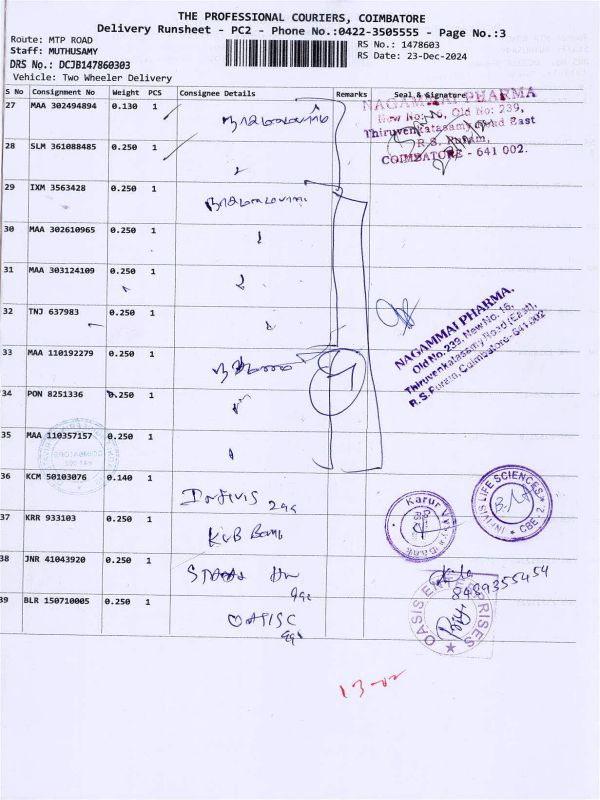 THE PROFESSIONAL COURIERS, COIMBATORE
Delivery Runsheet - PC2 - Phone No.:0422-3505555 - Page No.:3
Route: MTP ROAD
RS No.: 1478603
Staff: MUTHUSAMY
RS Date: 23-Dec-2024
DRS No.: DCJB147860303
Vehicle: Two Wheeler Delivery
S No Consignment No Weight PCS Consignee Details Remarks Seal & Signature
27 MAA 302494894 0.130 1
NAGAMMAI PHARMA
Old No: 239,
Thiruvenkatasamy Road East
R.S. Puram,
COIMBATORE - 641 002.
28 SLM 361088485 0.250 1
29 IXM 3563428 0.250 1
30 MAA 302610965 0.250 1
31 MAA 303124109 0.250 1
32 TNJ 637983 0.250 1
NAGAMMAI PHARMA,
Old No. 239, New No. 16,
Thiruvenkatasamy Road (East),
R.S. Puram, Coimbatore-641 002
33 MAA 110192279 0.250 1
34 PON 8251336 0.250 1
35 MAA 110357157 0.250 1
36 KCM 50103076 0.140 1
INFIVIS LIFE SCIENCES
CBE-2
37 KRR 933103 0.250 1 KVB Bank
Karur Vysya Bank
38 JNR 41043920 0.250 1
8489355454
39 BLR 150710005 0.250 1
OASIS ENTERPRISES